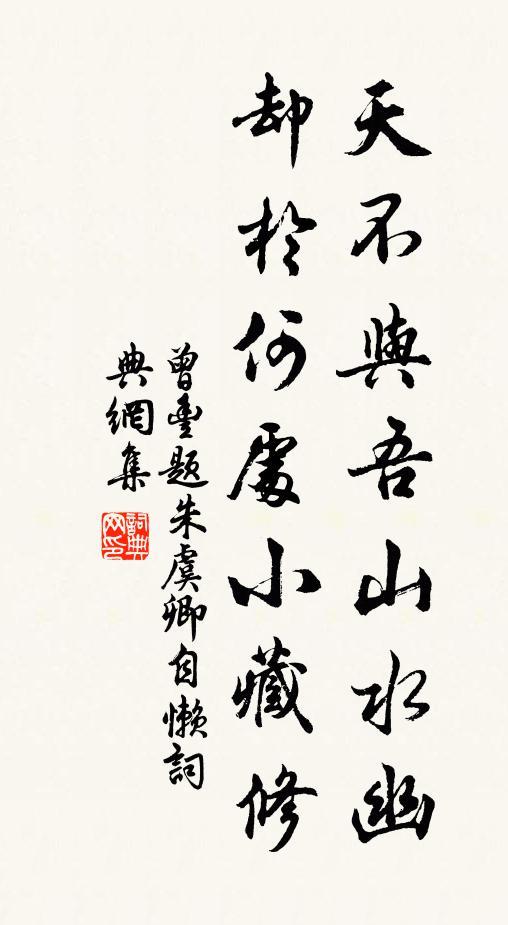 天不與吾山水幽
却於何處小藏修
曾豐題朱虞卿自懶詞
典網集
詞典網印